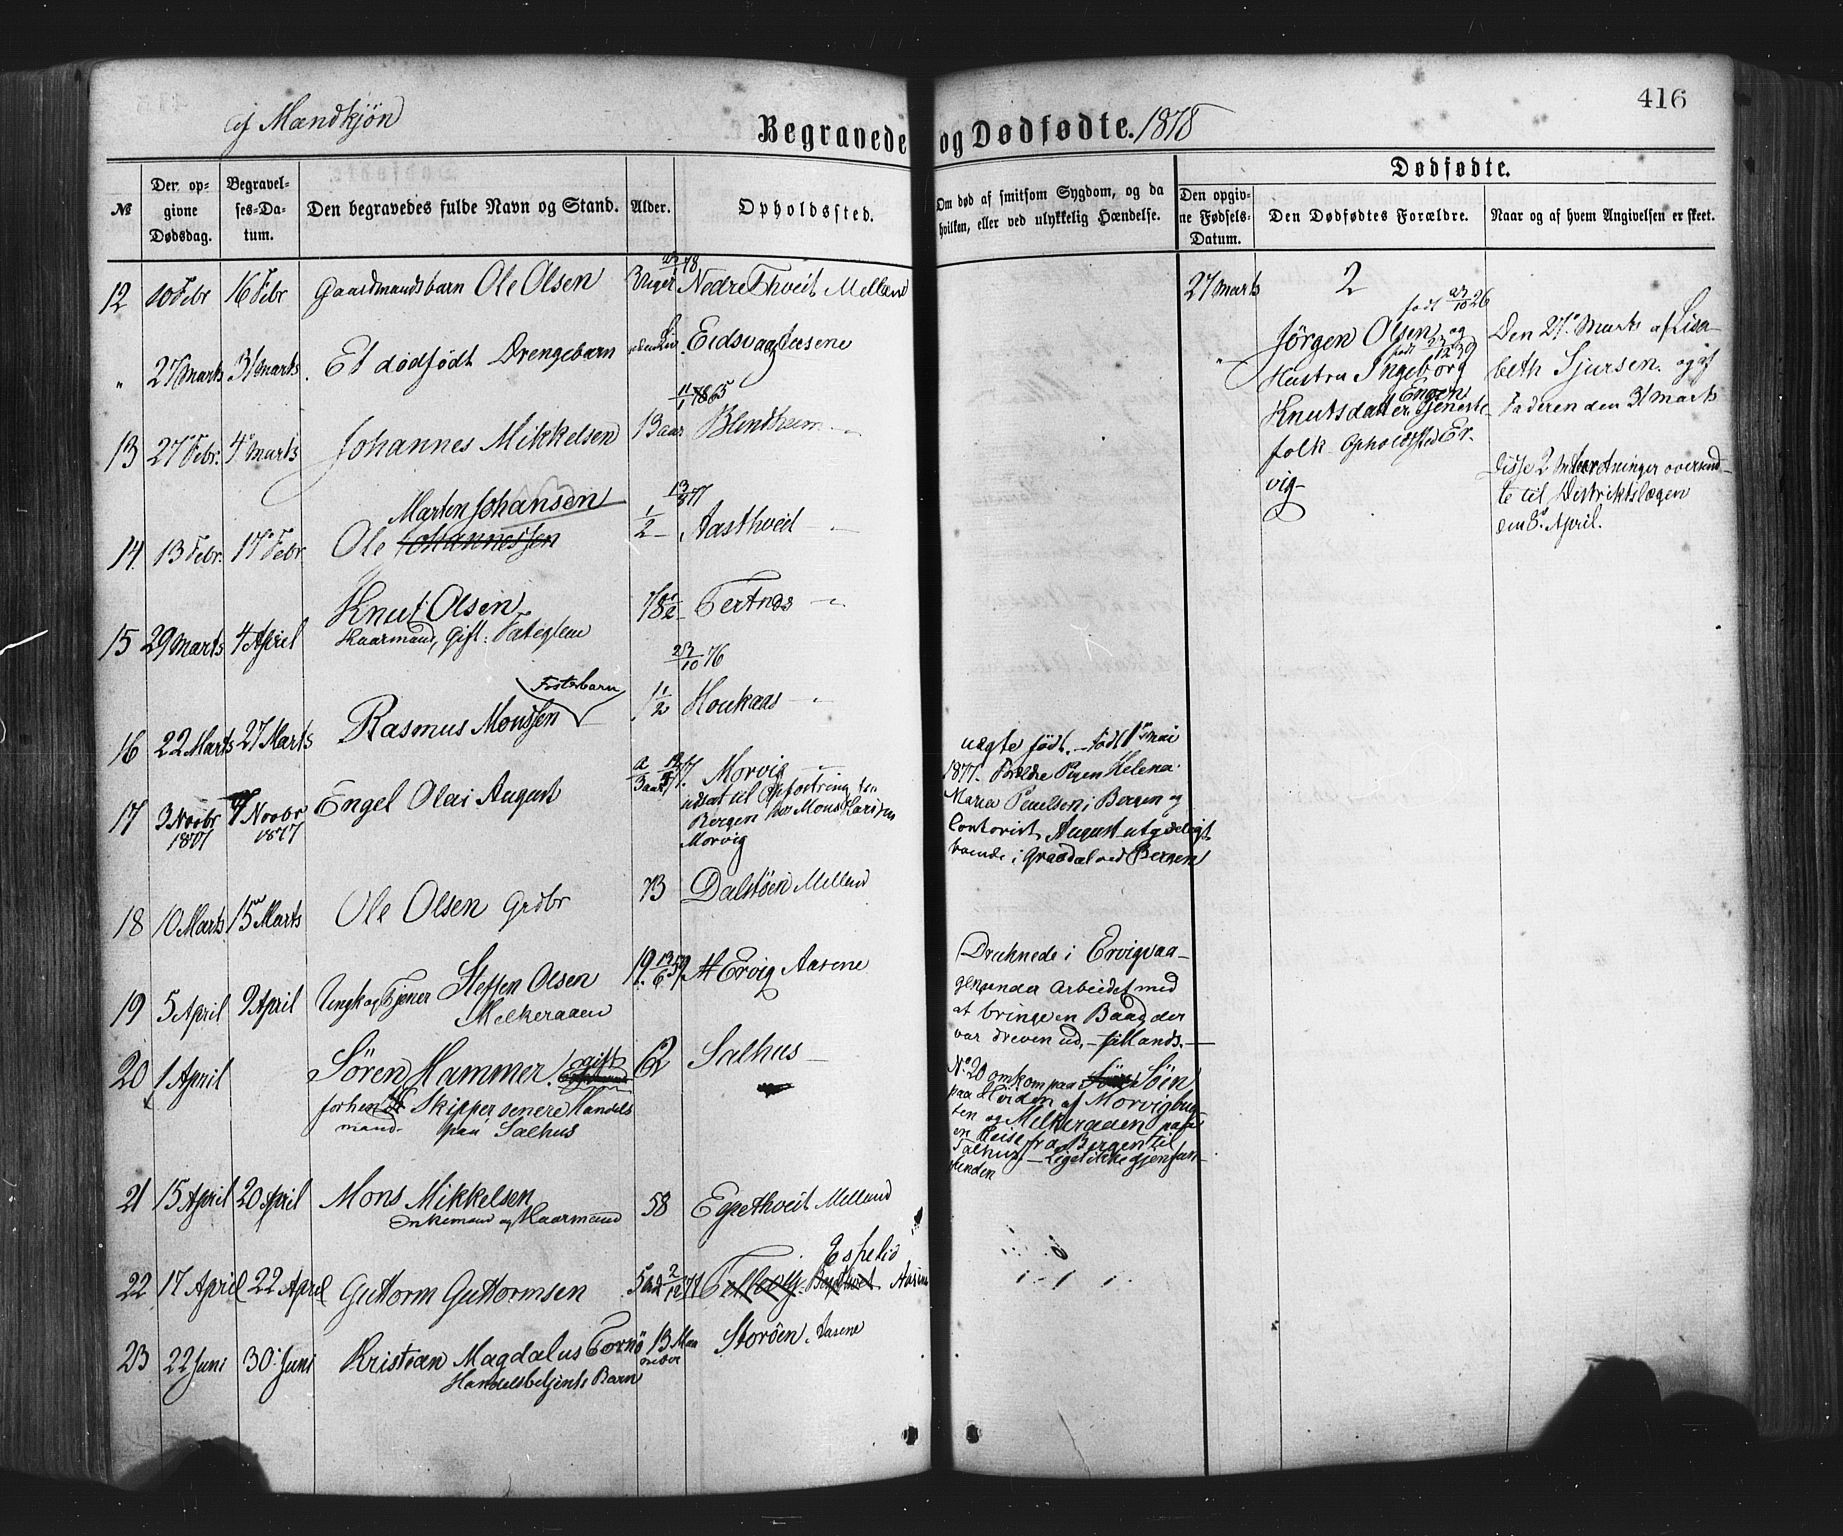 af Mandkjøn
416
Begravede og Dødfødte. 1878
Dødfødte.
№
Den opgivne Dødsdag.
Begravelses-Datum.
Den begravedes fulde Navn og Stand.
Alder.
Opholdssted.
Om død af smitsom Sygdom, og da hvilken, eller ved ulykkelig Hændelse.
Den opgivne Fødsels-Datum.
Den Dødfødtes Forældre.
Naar og af hvem Angivelsen er skeet.
12 10 Febr 16 Febr Gaardmandsbarn Ole Olsen 3 Uger 78 Nedre Thveit Melland
" 27 Marts 31 Marts Et dødfødt Drengebarn Eidsvaag Aasene
27 Marts 2
født 23/10 26
Jørgen Olsen og
Hustru Ingeborg
Engen
Knutsdatter, Tjeneste-
folk Opholdssted Er-
vig
Den 27 Marts af Lisa-
beth Sjursen og af
Faderen den 31 Marts
Disse 2 Indberetninger oversend-
te til Distriktslægen
den 3 April.
13 27 Febr. 4 Marts Johannes Mikkelsen 13 aar 11/1 1865 Blindheim "
14 13 Febr. 17 Febr Ole Johannessen Martin Johansen 1/2 13/8 77 Aasthveit "
15 29 Marts 4 April Knut Olsen 78 1/2 Tertnæs "
Kaarmand, Gift: Fateglem
16 22 Marts 27 Marts Rasmus Monssen Fosterbarn 1 1/2 23/10 76 Houkaas "
17 3 Novbr 1877 9 Novbr 1877 Engel Olai August Morvig
udsat til Opfostring fra
Bergen hos Mons Larsen
Morvig
uægte født. født 1 mai
1877. Forældre Pigen Helena
Maria Paulsen i Bergen og
Contorist August utydeligt
boende i Graadal ved Bergen
18 10 Marts 15 Marts Ole Olsen Grdbr 73 Dalstøen Melland
19 5 April 9 April Ungk og Tjener Steffen Olsen 19 13/6 59 Ervig Aasene
Melkeraaen
Druknede i Ervigvaa-
gen under Arbeidet med
at bringe en Baad, der
var dreven ud, til lands.
20 1 April Søren Hammer. gift 62 Salhus
forhen Skipper senere Handels
mand paa Salhus
No. 20 omkom paa Søen
paa Høiden af Morvigbug-
ten og Melkeraaen paa
en Reise fra Bergen til
Salhus, Liget ikke gjenfun-
den
21 15 April 20 April Mons Mikkelsen 58 Eggethveit Melland
Enkemand og Kaarmand
22 17 April 22 April Guttorm Guttormsen 2/12 77 Espelid Aasene
23 22 Juni 30 Juni Kristian Magdalus Tornø 13 Maaneder Storøen Aasene
Handelsbetjents Barn